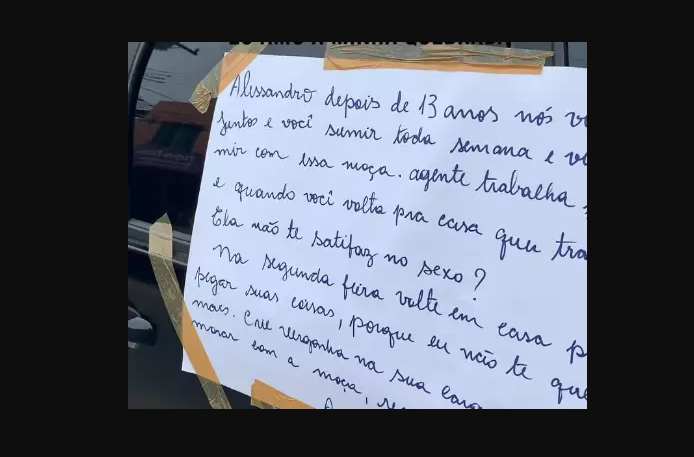 Alessandro depois de 13 anos nós
juntos e você sumir toda semana e
mir com essa moça. agente trabalha
e quando você volta pra casa quer
Ela não te satifaz no sexo?
Na segunda feira volte em casa
pegar suas coisas, porque eu não te
mais. Crie vergonha na sua
morar com a moça,